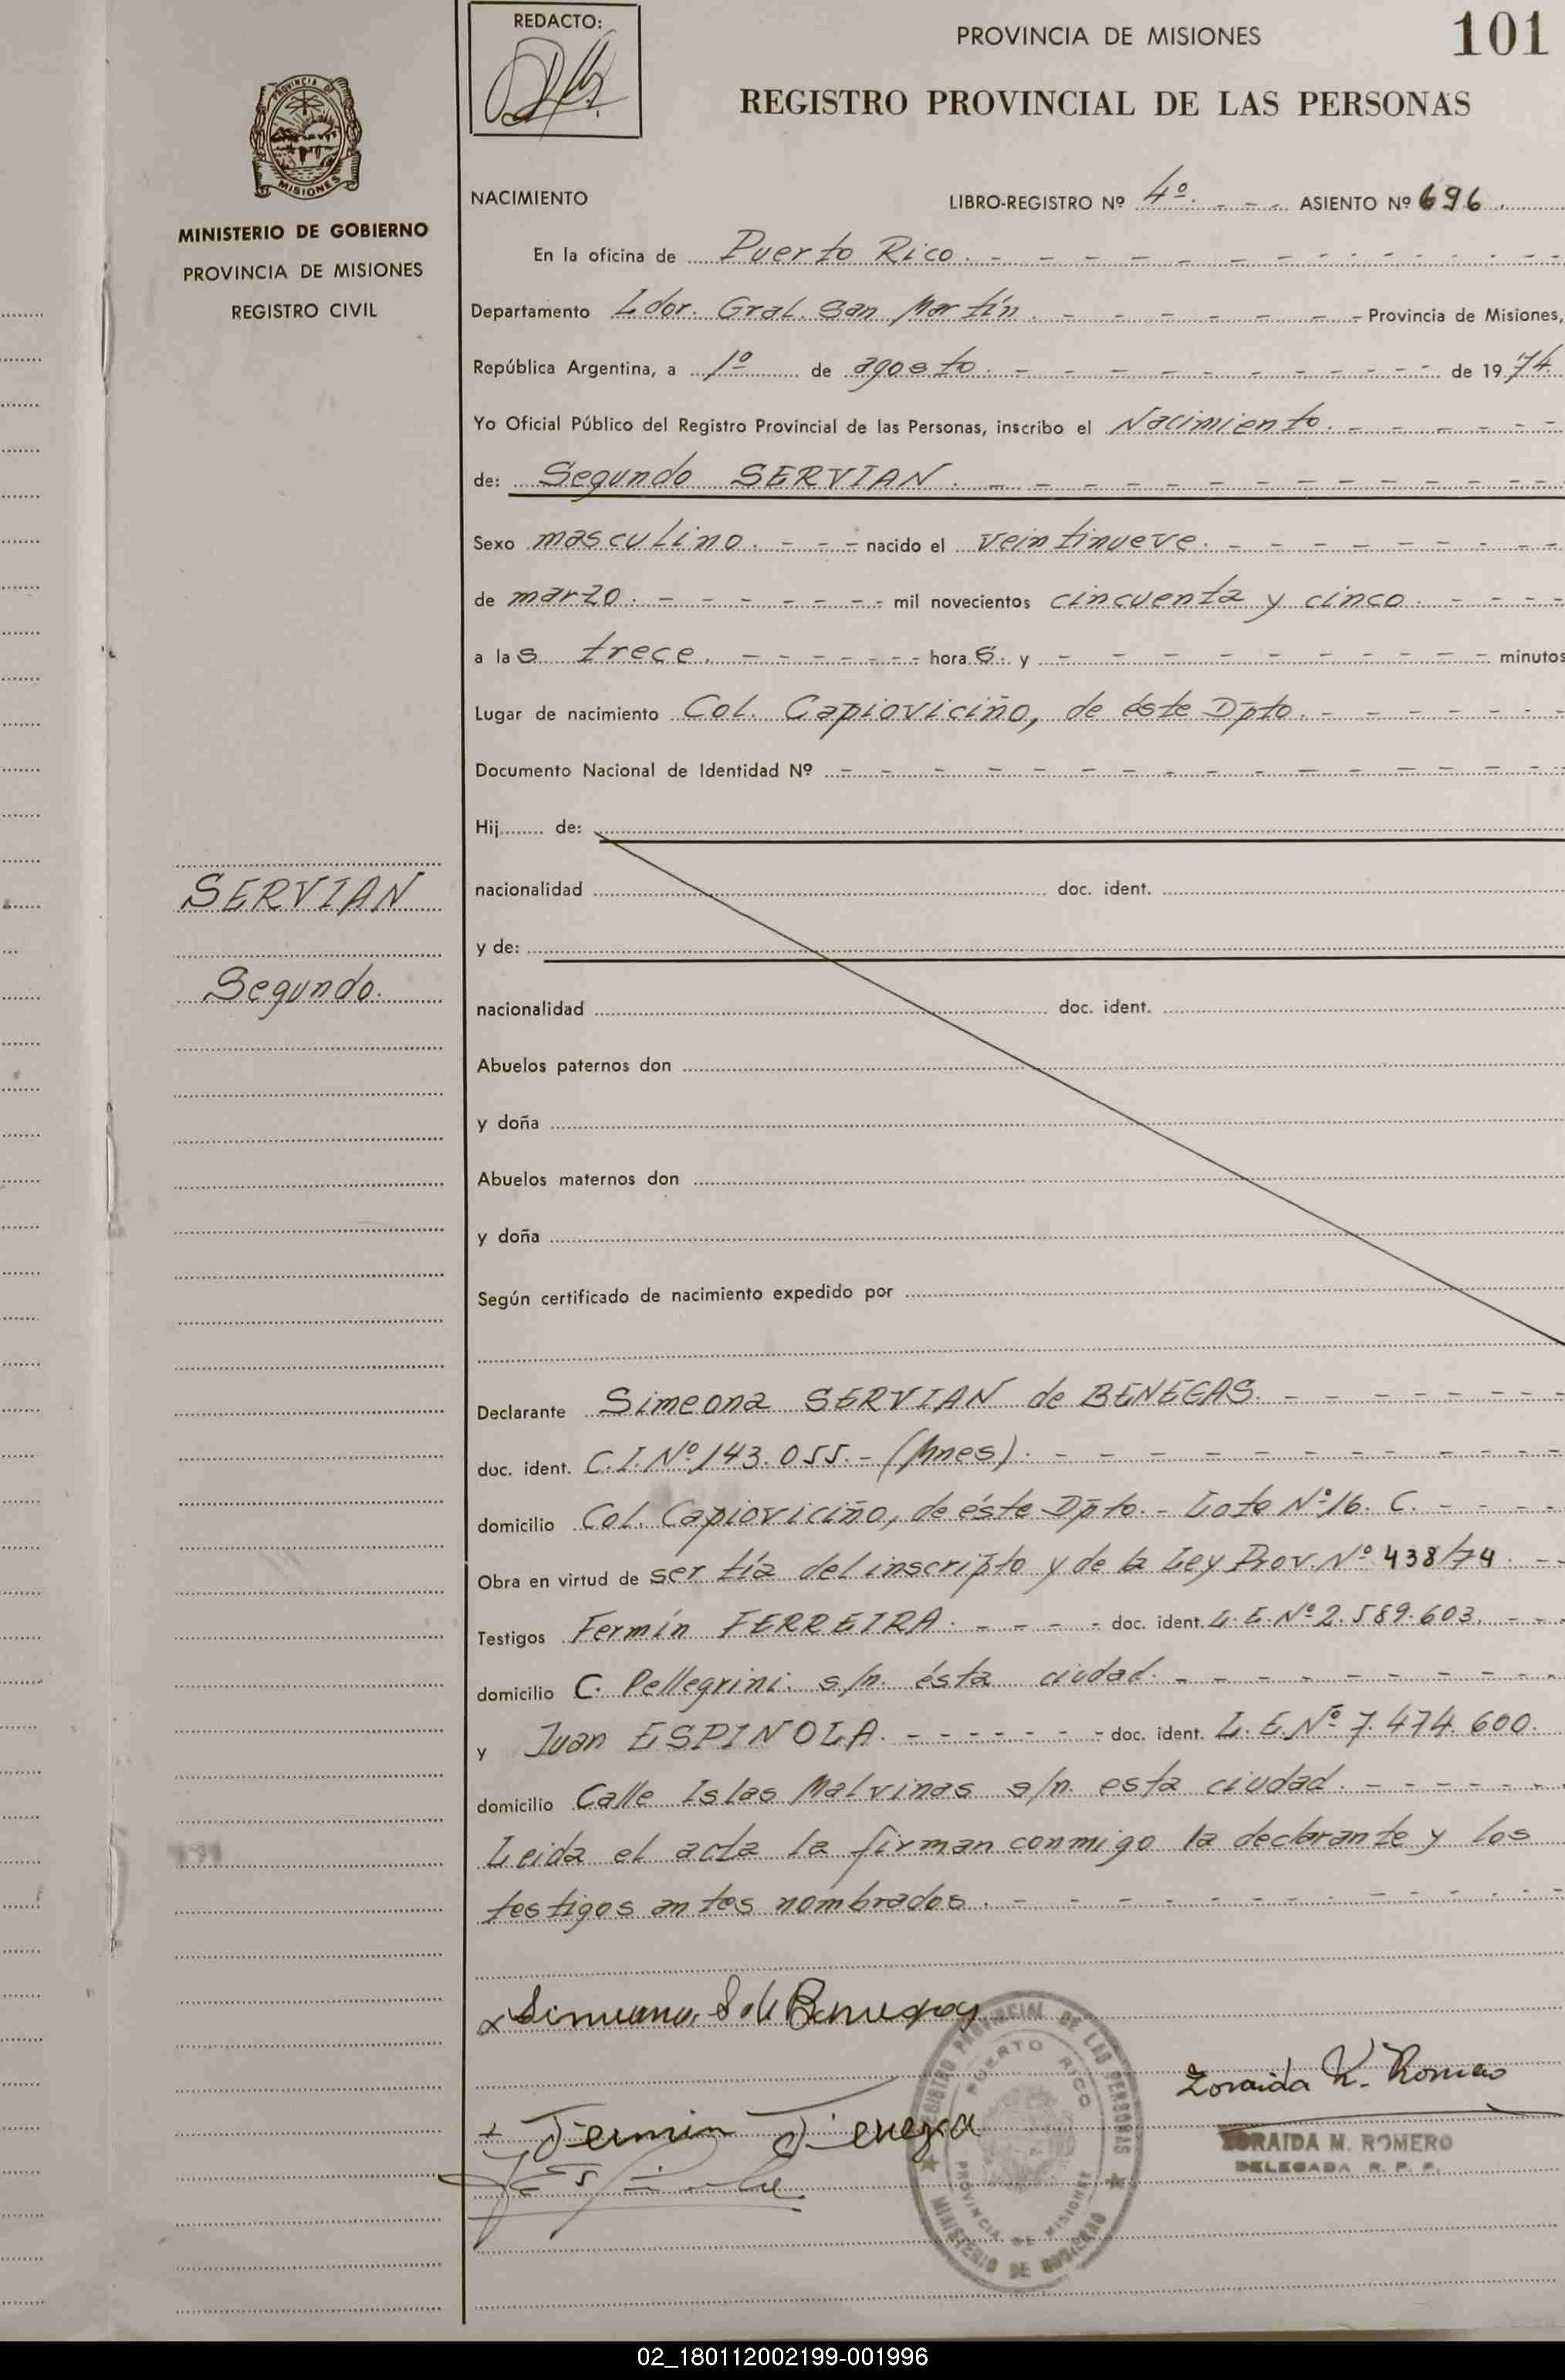 REDACTO:
PROVINCIA DE MISIONES
101
REGISTRO PROVINCIAL DE LAS PERSONAS
PROVINCIA DE
MISIONES
MINISTERIO DE GOBIERNO
PROVINCIA DE MISIONES
REGISTRO CIVIL
NACIMIENTO LIBRO-REGISTRO Nº 4º. - - - ASIENTO Nº 696.
En la oficina de Puerto Rico.
Departamento Ldor. Gral. San Martín. Provincia de Misiones,
República Argentina, a 1º de agosto. de 1974
Yo Oficial Público del Registro Provincial de las Personas, inscribo el Nacimiento.
de: Segundo SERVIAN.
Sexo masculino. - - - nacido el veintinueve.
de marzo. mil novecientos cincuenta y cinco.
a las trece. horas. y minutos
Lugar de nacimiento Col. Capioviciño, de éste Dpto.
Documento Nacional de Identidad Nº
Hij........ de:
nacionalidad doc. ident.
y de:
nacionalidad doc. ident.
Abuelos paternos don
y doña
Abuelos maternos don
y doña
Según certificado de nacimiento expedido por
SERVIAN
Segundo.
Declarante Simeona SERVIAN de BENEGAS.
doc. ident. C.I. Nº 143.055.- (Mnes).
domicilio Col. Capioviciño, de éste Dpto.- Lote Nº 16. C.
Obra en virtud de ser tía del inscripto y de la Ley Prov. Nº 438/74.
Testigos Fermín FERREIRA. doc. ident. L.E. Nº 2.589.603.
domicilio C. Pellegrini. s/n. ésta ciudad.
y Juan ESPINOLA. doc. ident. L.E Nº 7.474.600.
domicilio Calle Islas Malvinas s/n. esta ciudad.
Leida el acta la firman conmigo la declarante y los
testigos antes nombrados.
REGISTRO PROVINCIAL DE LAS PERSONAS
PUERTO RICO
PROVINCIA DE MISIONES
MINISTERIO DE GOBIERNO
Zoraida K. Romero
ZORAIDA M. ROMERO
DELEGADA R. P. P.
02_180112002199-001996